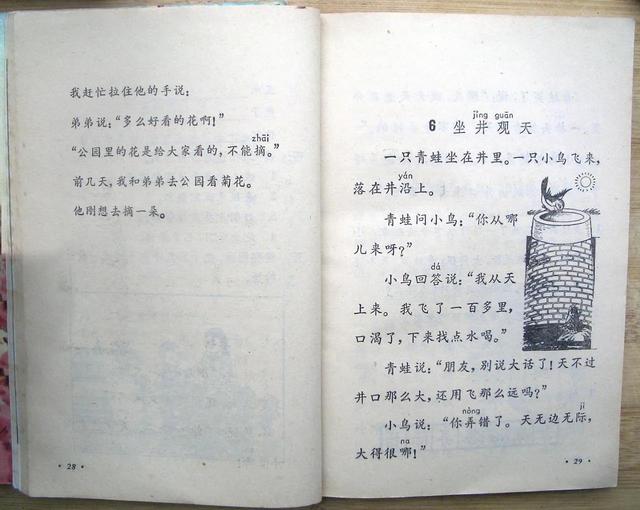 我赶忙拉住他的手说：
弟弟说：“多么好看的花啊！”
zhāi
“公园里的花是给大家看的，不能摘。”
前几天，我和弟弟去公园看菊花。
他刚想去摘一朵。
· 28 ·
jǐng guān
6 坐井观天
一只青蛙坐在井里。一只小鸟飞来，
yán
落在井沿上。
青蛙问小鸟：“你从哪
儿来呀？”
dá
小鸟回答说：“我从天
上来。我飞了一百多里，
口渴了，下来找点水喝。”
青蛙说：“朋友，别说大话了！天不过
井口那么大，还用飞那么远吗？”
nòng jì
小鸟说：“你弄错了。天无边无际，
na
大得很哪！”
· 29 ·